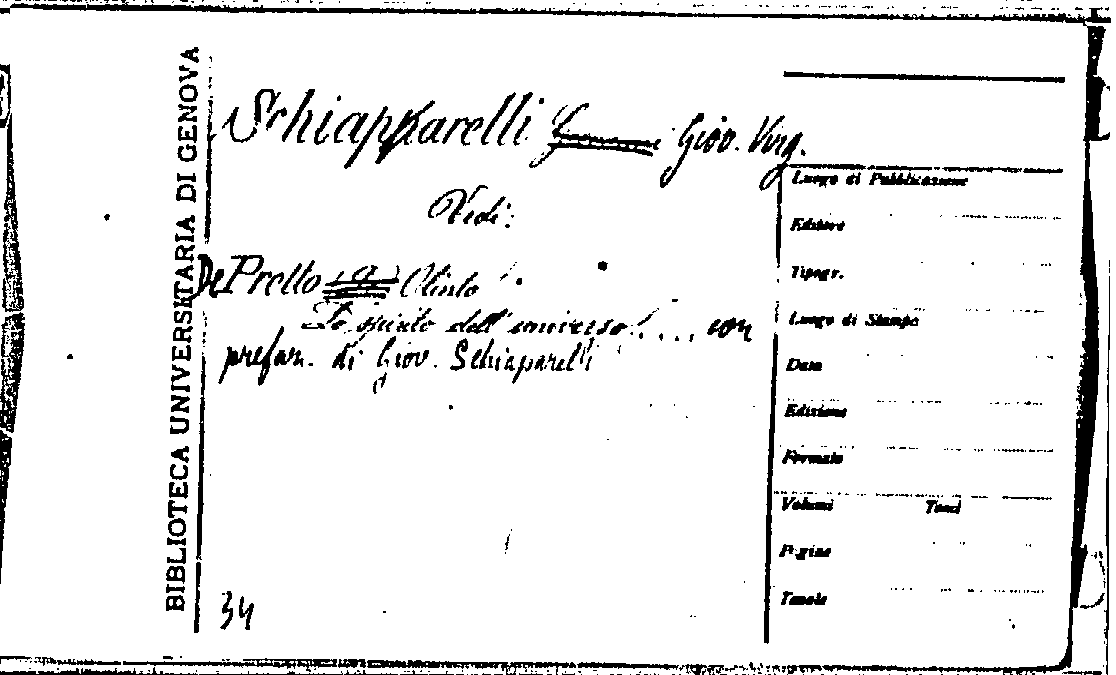 BIBLIOTECA UNIVERSITARIA DI GENOVA
Schiapparelli Giov. Virg.
Vedi:
De Pretto Olinto
Lo spirito dell'universo!.... con
prefaz. di Giov. Schiaparelli
34
Luogo di Pubblicazione
Editore
Tipogr.
Luogo di Stampa
Data
Edizione
Formato
Volumi Tomi
Pagine
Tavole